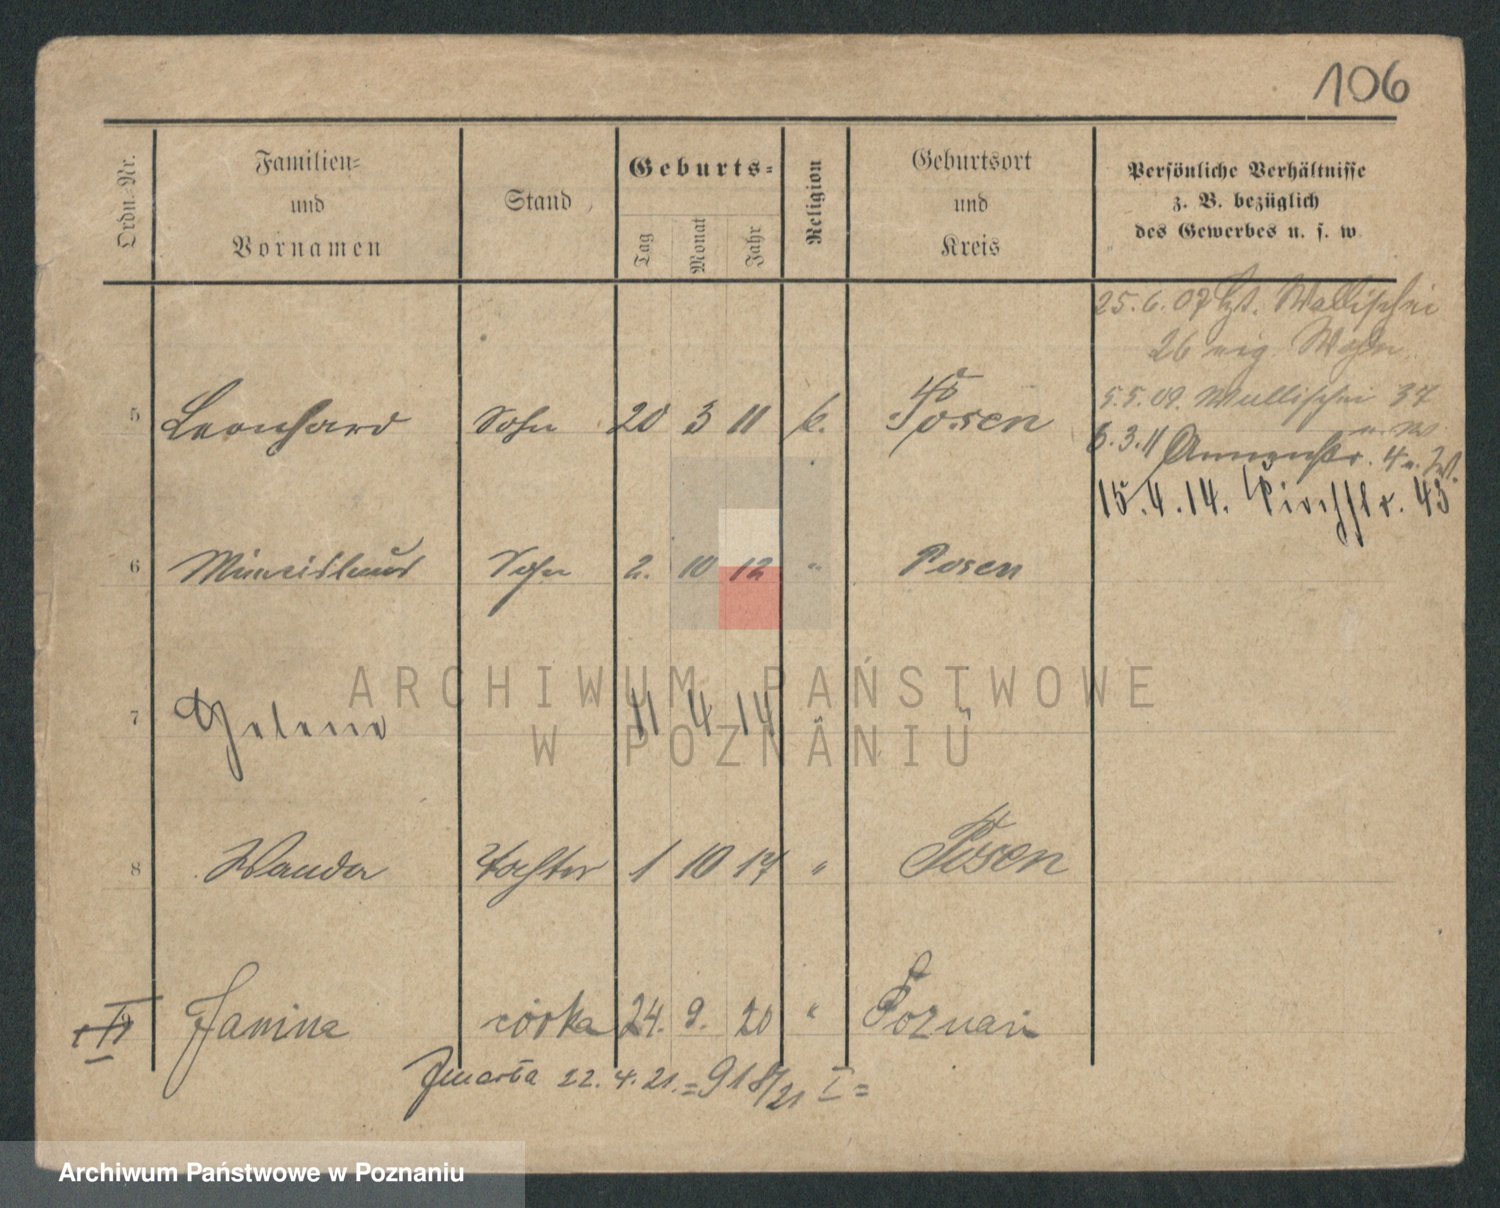 106
Ordn.-Nr.
Familien-
und
Vornamen
Stand
Geburts-
Tag
Monat
Jahr
Religion
Geburtsort
und
Kreis
Persönliche Verhältnisse
z. B. bezüglich
des Gewerbes u. s. w.
25.6.07 Wallischei
26 eig. Wohn
5.5.09. Wallischei 37
u. W.
5 Leonhard Sohn 20 3 11 k. Posen
6.3.11 Annenstr. 4 u. W.
15.4.14. Kirchstr. 43
6 Miecislaus Sohn 2. 10 12 " Posen
ARCHIWUM PAŃSTWOWE
7 Helene 11 4 14 " "
W POZNANIU
8 Wanda Tochter 1 10 17 " Posen
9 Janina córka 24. 9. 20 " Poznań
Zmarła 22.4.21. = 918/21 I =
Archiwum Państwowe w Poznaniu